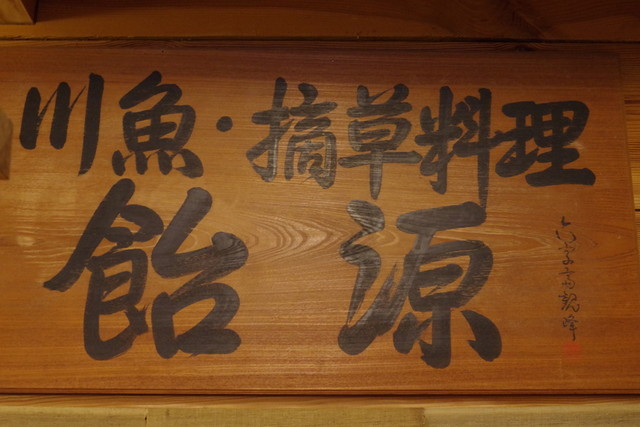 川魚・摘草料理
飴源